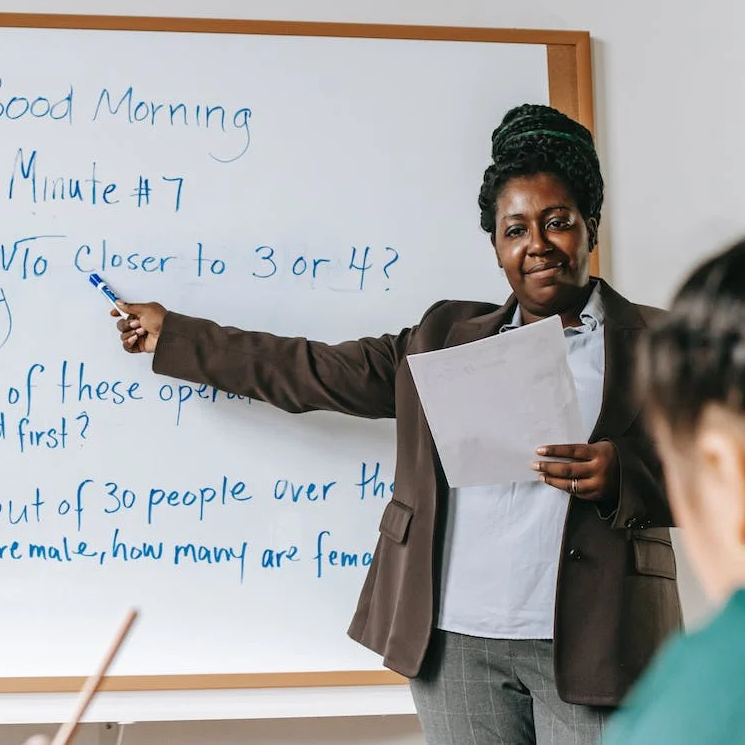 Good Morning
Minute #7
√10 closer to 3 or 4?
of these
first?
out of 30 people over
male, how many are